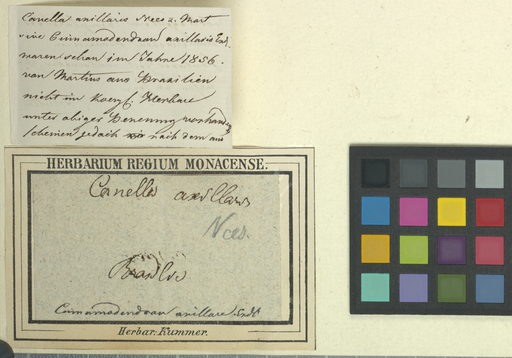 Canella axillaris Nees u. Mart
sive Cinnamodendron axillaris Endl.
waren schon im Jahre 1856.
von Martius aus Brasilien
nicht im Koegl. Herbare
unter obiger Benennung vorhanden
scheinen jedoch nach dem aus
HERBARIUM REGIUM MONACENSE.
Canella axillaris
Nees.
Brasilia
Cinnamodendron axillare Endl
Herbar: Kummer.